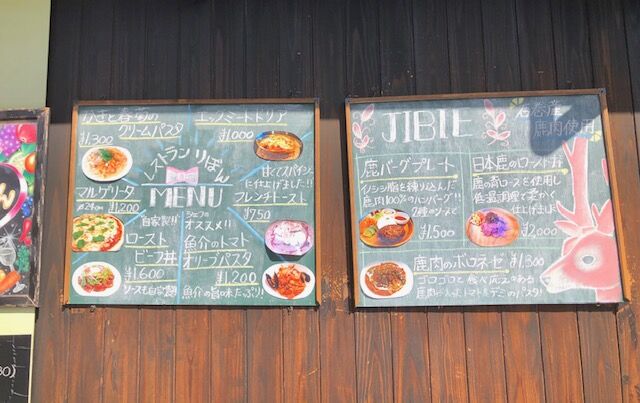 春菊の
クリームパスタ
¥1300
エッグミートドリア
¥1,000
スパイシー
に仕上げました!!
レストランりぼん
MENU
マルゲリータ
¥1,200
フレンチトースト
¥750
"自家製!!"
ロースト
ビーフ丼
¥1,600
ソースも自家製
シェフの
オススメ!!
魚介のトマト
オリーブパスタ
¥1,200
魚介の旨味たっぷり!!
JIBIE
石巻産
鹿肉使用
鹿バーグプレート
イノシシ脂を練り込んだ
鹿肉100%のハンバーグ!!
2種のソースで
¥1,500
日本鹿のロースト丼
鹿の肩ロースを使用し
低温調理で柔かく
仕上げました
¥2,000
鹿肉のボロネーゼ ¥1,300
ゴロゴロと食べ応えある
鹿肉 トマト&デミのパスタ!